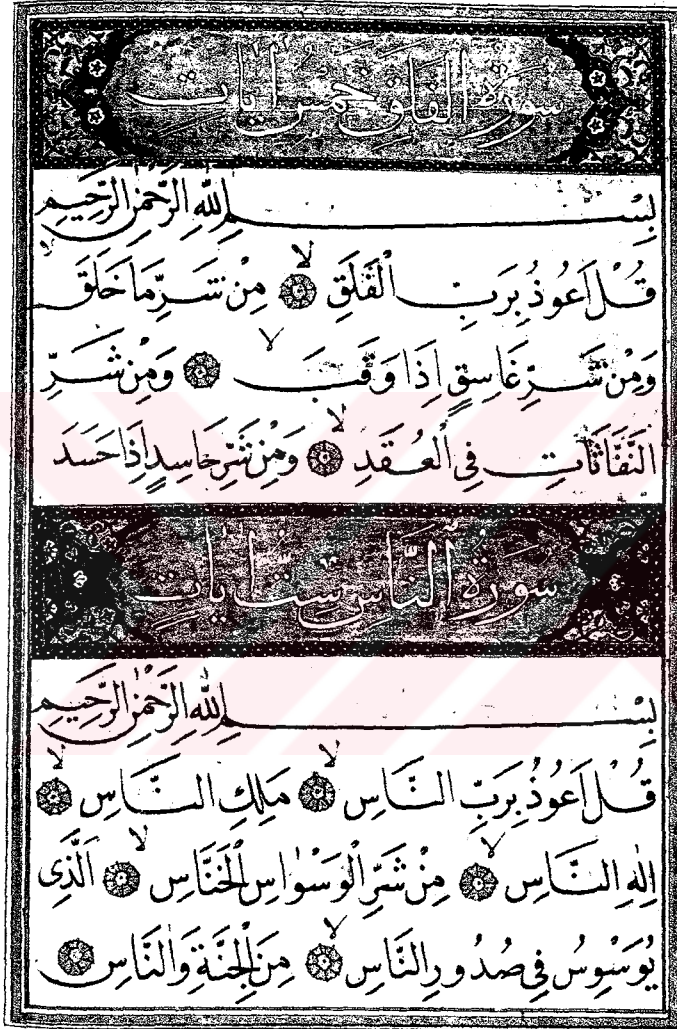 سُورَةُ الْفَلَقِ خَمْسُ اٰيَاتٍ
بِسْمِ اللّٰهِ الرَّحْمٰنِ الرَّحِيمِ
قُلْ اَعُوذُ بِرَبِّ الْفَلَقِ ۙ مِنْ شَرِّ مَا خَلَقَ ۙ
وَمِنْ شَرِّ غَاسِقٍ اِذَا وَقَبَ ۙ وَمِنْ شَرِّ
النَّفَّاثَاتِ فِى الْعُقَدِ ۙ وَمِنْ شَرِّ حَاسِدٍ اِذَا حَسَدَ
سُورَةُ النَّاسِ سِتُّ اٰيَاتٍ
بِسْمِ اللّٰهِ الرَّحْمٰنِ الرَّحِيمِ
قُلْ اَعُوذُ بِرَبِّ النَّاسِ ۙ مَلِكِ النَّاسِ ۙ
اِلٰهِ النَّاسِ ۙ مِنْ شَرِّ الْوَسْوَاسِ الْخَنَّاسِ ۙ اَلَّذِى
يُوَسْوِسُ فِى صُدُورِ النَّاسِ ۙ مِنَ الْجِنَّةِ وَالنَّاسِ